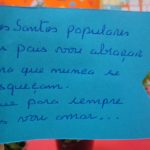 os Santos populares
s pais vou abraçar
ra que nunca se
squeçam.
ue para sempre
s vou amar...